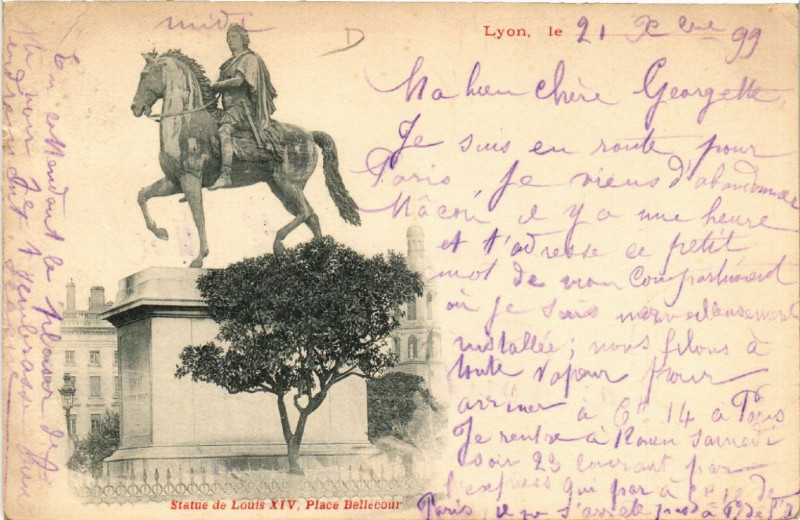 midi
D
Lyon, le 21 Xbre 99
Ma bien chère Georgette
Je suis en route pour
Paris, je viens d'abandonner
Mâcon il y a une heure
et t'adresse ce petit
mot de mon compartiment
où je suis merveilleusement
installée; nous filons à
toute vapeur pour
arriver à 6h 14 à Paris
Je rentre à Rouen samedi
soir 23 courant par
l'express qui par à
Paris,
En attendant le plaisir de
te voir je t'embrasse bien
Statue de Louis XIV, Place Bellecour